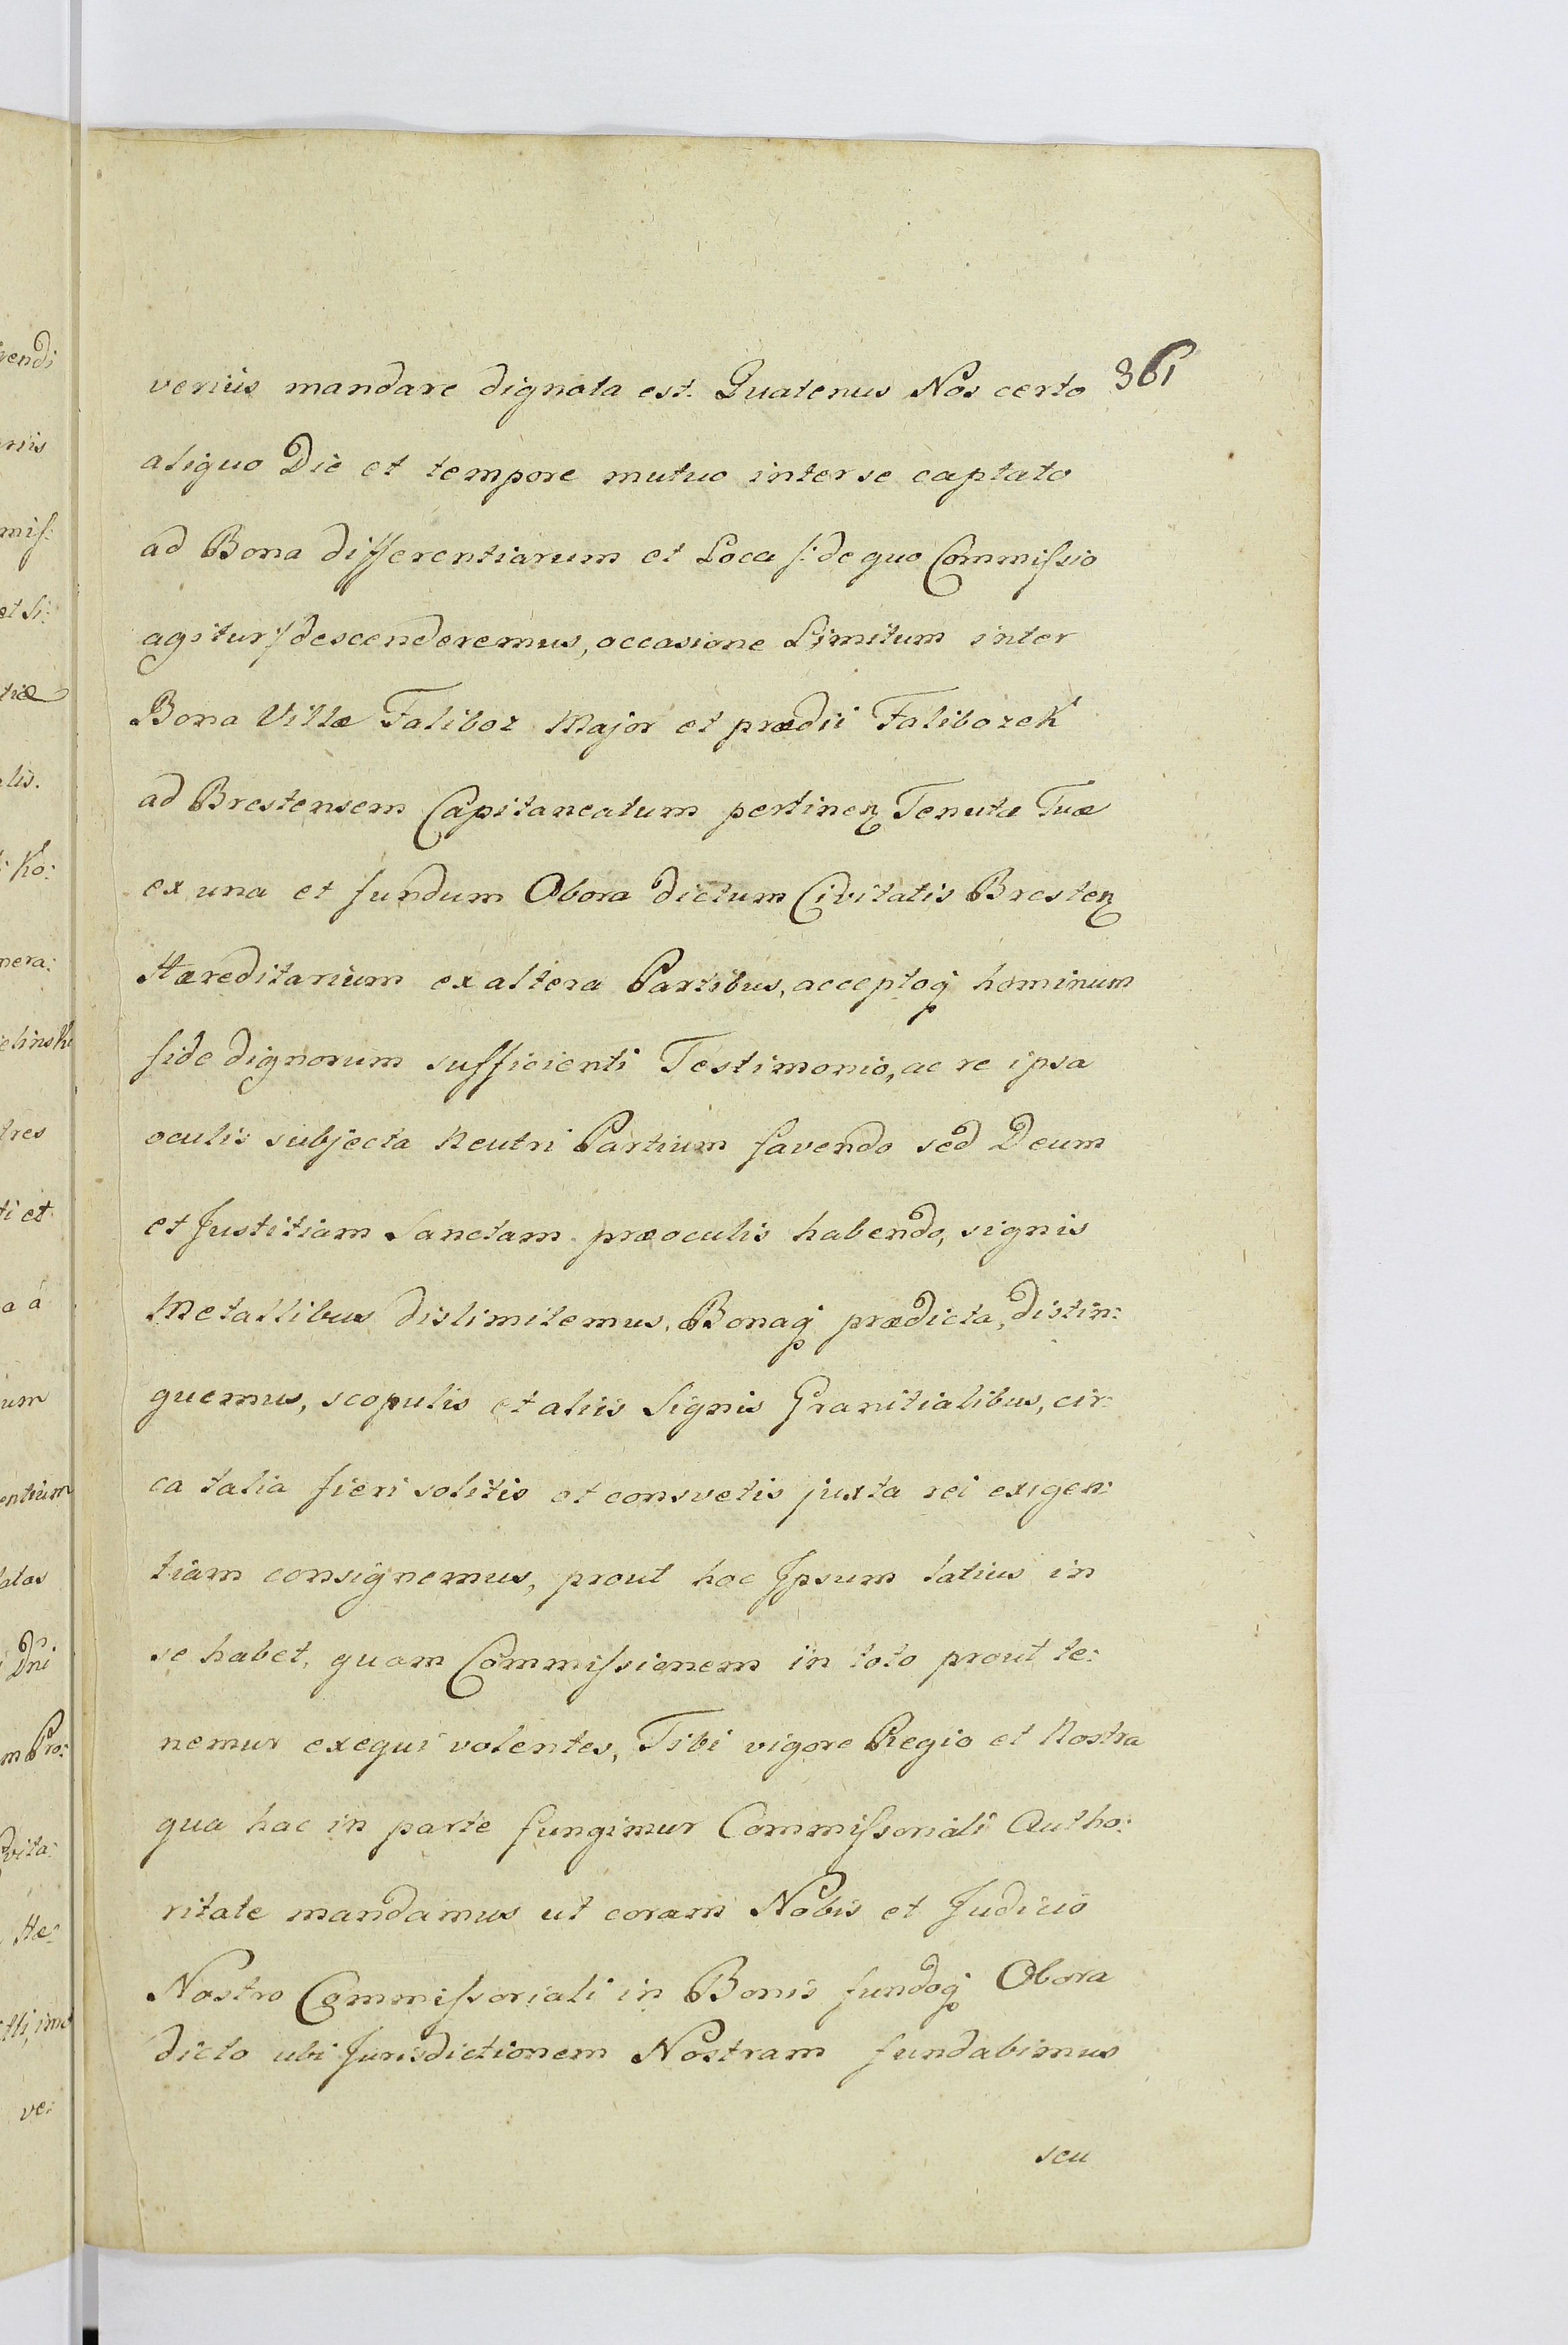 361
veriùs mandare dignata est. Quatenus Nos certo
aliquo Die et tempore mutuo inter se captato
ad Bona differentiarum et Loca /: de quo Commissio
agitur :/ descenderemus, occasione Limitum inter
Bona Villæ Faliboz Major et prædii Falibozek
ad Brestensem Capitaneatum pertineɳ Tenutæ Tuæ
ex una et fundum Obora dictum Civitatis Bresteɳ
Hæreditarium ex altera Partibus, acceptoq hominum
fide dignorum sufficienti Testimonio, ac re ipsa
oculis subjecta Neutri Partium favendo sed Deum
et Justitiam Sanctam præoculis habendo, signis
Metallibus dislimitemus, Bonaq prædicta, distin:
guemus, scopulis et aliis Signis Granitialibus, cir:
ca talia fieri solitis et consvetis juxta rei exigen:
tiam consignemus, prout hoc Ipsum latius in
se habet, quam Commissionem in toto prout te:
nemur exequi volentes, Tibi vigore Regia et Nostra
qua hac in parte fungimur Commissoriali Autho:
ritate mandamus ut coram Nobis et Judicio
Nostro Commissoriali in Bonis fundoq Obora
dicto ubi Jurisdictionem Nostram fundabimus
seu